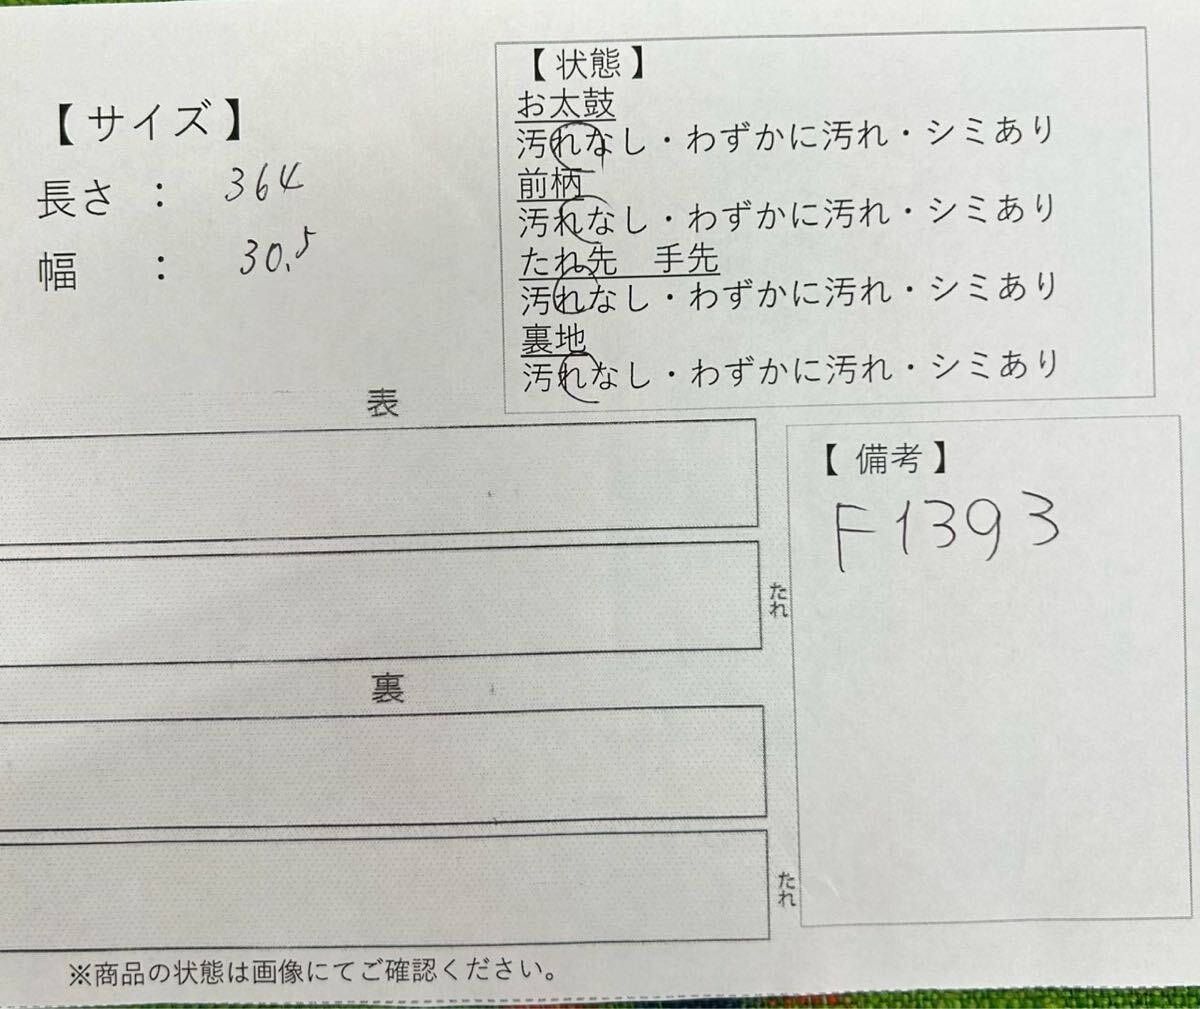 【 サイズ 】
長さ ： 364
幅 ： 30.5
【 状態 】
お太鼓
汚れなし・わずかに汚れ・シミあり
前柄
汚れなし・わずかに汚れ・シミあり
たれ先　手先
汚れなし・わずかに汚れ・シミあり
裏地
汚れなし・わずかに汚れ・シミあり
表
たれ
裏
たれ
【 備考 】
F1393
※商品の状態は画像にてご確認ください。